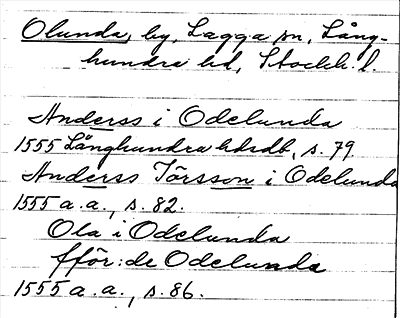 Olunda, by, Lagga sn, Lång-
hundra hd, Stockh. l.
Anderss i Odelunda
1555 Långhundra hdsdb, s. 79.
Anderss Törsson i Odelunda
1555 a. a., s. 82.
Ola i Odelunda
fför: de Odelunda
1555 a. a., s. 86.